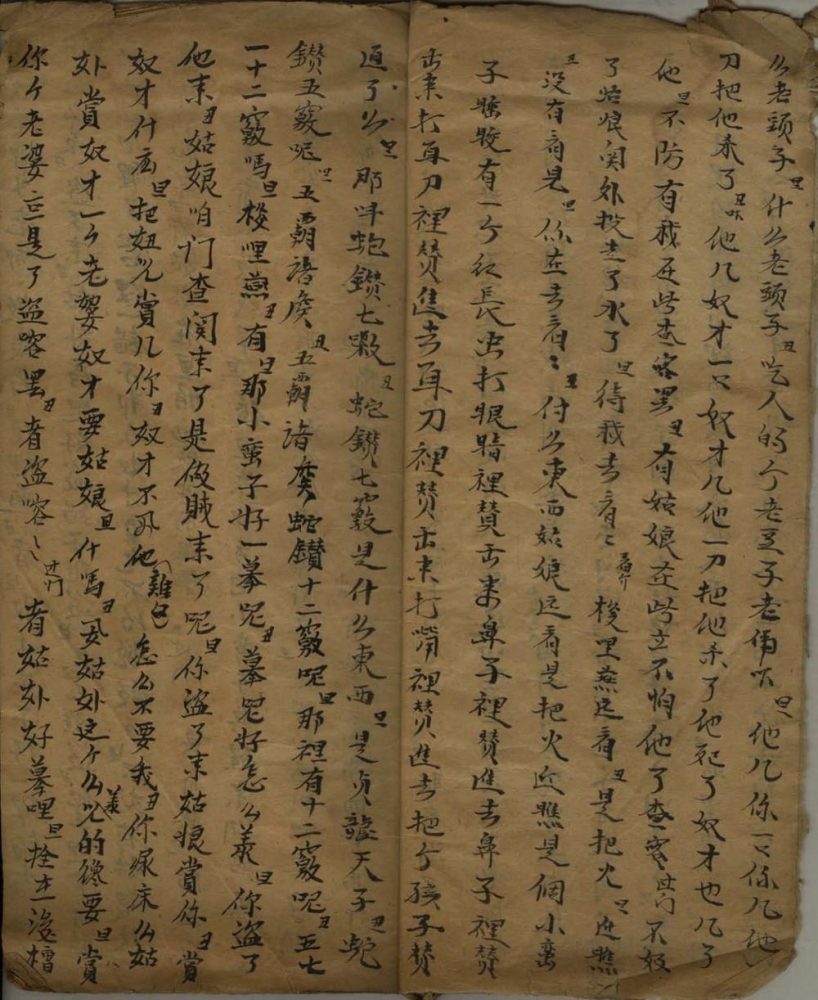 么老頭子旦什么老頭子丑吃人的个老王子老偹吓旦他几你一口你几他
刀把他杀了丑吓他几奴才一口奴才几他一刀把他杀了他死了奴才也几了
他旦不防有我在此查窑罢丑有姑娘在此立不怕他了查窑过门不奴
了姑娘関外投走了水了旦待我去看看介梭里燕近看丑是把火旦近瞧
丑没有看見旦你在去看看丑什么東西姑娘近看是把火近瞧是個小蛮
子睡晙有一个红長虫打眼睛裡赞击来鼻子裡赞進去鼻子裡赞
击来打耳刀裡赞進去耳刀裡赞击来打嘴裡赞進去把个孩子赞
通了么旦那叫蛇鑽七竅丑蛇鑽七竅是什么東西旦是貞龍天子丑蛇
鑽五竅呢旦五霸諸侯丑五霸諸侯蛇鑽十二竅呢旦那裡有十二竅呢丑五七
一十二竅嗎旦梭哩燕丑有旦那小蛮子好一摹呢丑摹呢好怎么義旦你盗了
他来丑姑娘咱门查関来了是做賊来了呢旦你盗了来姑娘賞你丑賞
奴才什庅旦把妞兒賞几你丑奴才不要他難包怎么不要我丑你尿床么姑
外賞奴才一个老婆奴才要姑娘旦什嗎丑要姑外这个么兒的義饞要旦賞
你个老婆忘是了盗喀罢丑者盗喀喀过门者姑外好摹哩旦拴走沒檣